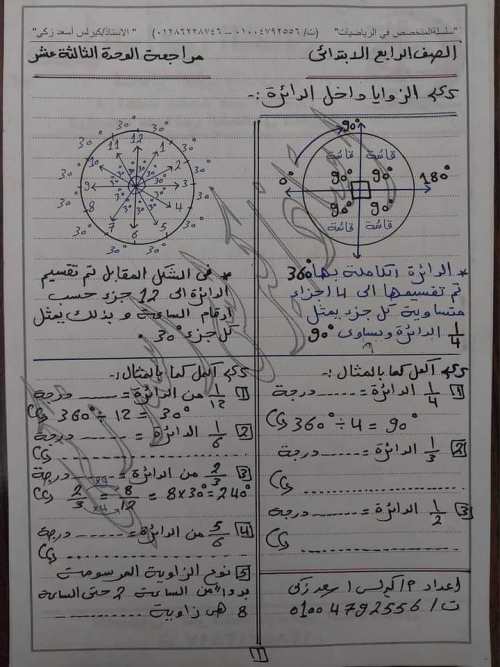 "سلسلة المتخصص فى الرياضيات" (ت/ ٠١٠٠٤٧٩٢٥٥٦ – ٠١٢٨٦٢٣٨٧٤٦) "الاستاذ/كيرلس أسعد زكى"
الصف الرابع الابتدائى
مراجعة الوحدة الثالثة عشر
الزوايا داخل الدائرة :-
90°
قائمة قائمة
90° 90°
0° 180°
90° 90°
قائمة قائمة
* الدائرة الكاملة بها 360°
تم تقسيمها الى 4 اجزاء
متساوية كل جزء يمثل
1/4 الدائرة ويساوى 90°
أكمل كما بالمثال :-
1 1/4 الدائرة = ...... درجة
360° ÷ 4 = 90°
2 1/3 الدائرة = ...... درجة
3 1/2 الدائرة = ...... درجة
اعداد م/ كيرلس اسعد زكى
ت/ 01004792556
30° 30° 30° 30° 30° 30° 30° 30° 30° 30° 30° 30°
12 1 2 3 4 5 6 7 8 9 10 11
* فى الشكل المقابل تم تقسيم
الدائرة الى 12 جزء حسب
ارقام الساعة و بذلك يمثل
كل جزء 30°
أكمل كما بالمثال :-
1 1/12 من الدائرة = ...... درجة
360° ÷ 12 = 30°
2 1/6 الدائرة = ...... درجة
3 2/3 من الدائرة = ...... درجة
2/3 = 8/12 = 8×30° = 240°
4 5/6 من الدائرة = ...... درجة
5 نوع الزاوية المرسومة
بدءاً من الساعة 2 حتى الساعة
8 هى زاوية ......
1